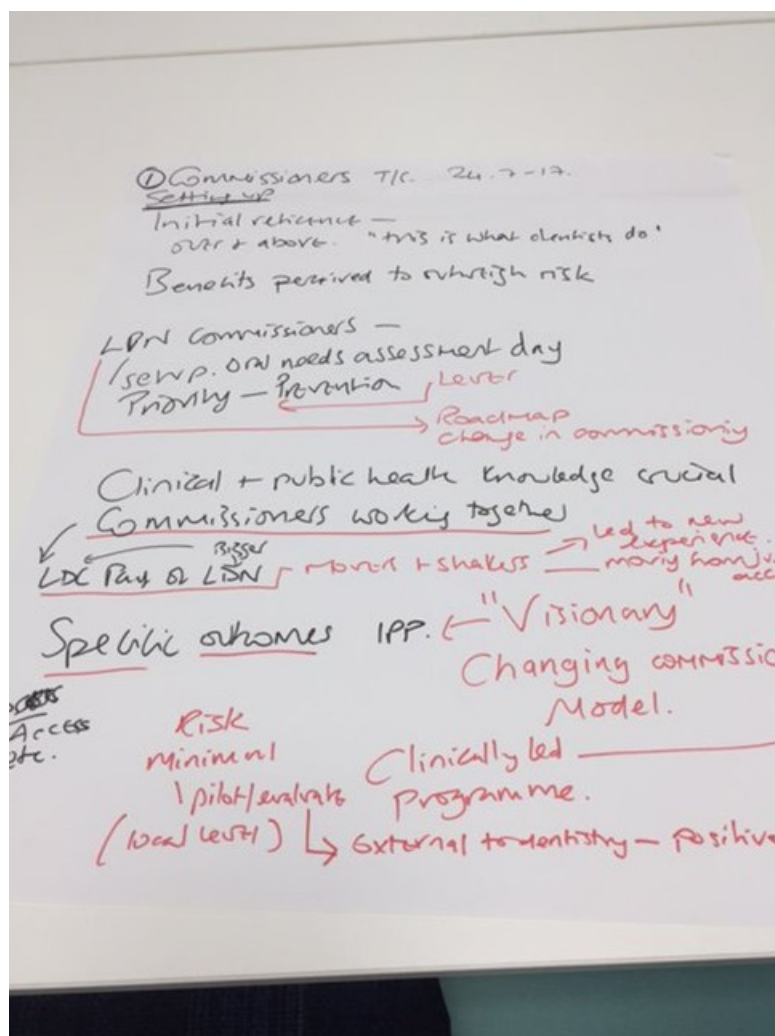 ① Commissioners T/C. 24.7-17.
Setting up
Initial reticence —
over + above. "this is what dentists do"
Benefits perceived to outweigh risk
LDN Commissioners —
/set up. oral needs assessment day
Priority — Prevention
Lever
Roadmap
change in commissioning
Clinical + public health knowledge crucial
Commissioners working together
Bigger
LDC Part of LDN
Movers + shakers
led to new
experience.
moving from ju
acc
Specific outcomes IPP.
"Visionary"
Changing commissio
Model.
Access
etc.
Risk
minimal
\ pilot/evaluate
(local level)
Clinically led
programme.
External to dentistry — positive